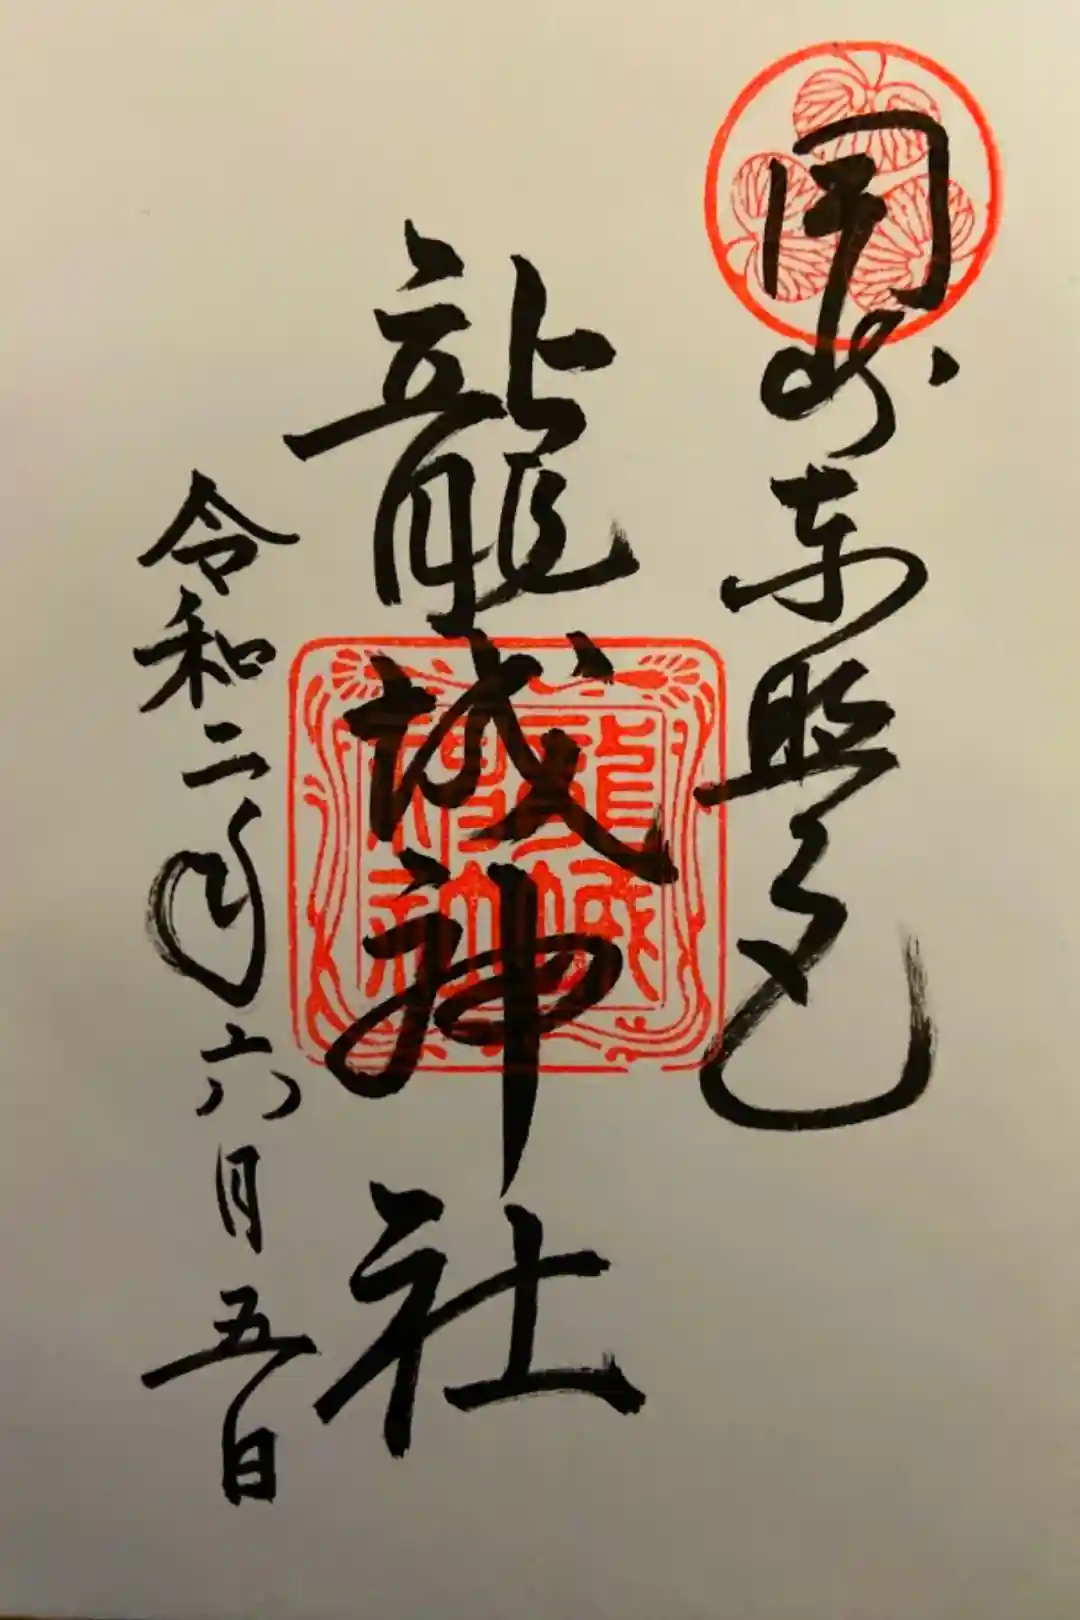 岡崎東照宮
龍城神社
令和二年六月五日
龍城
神社